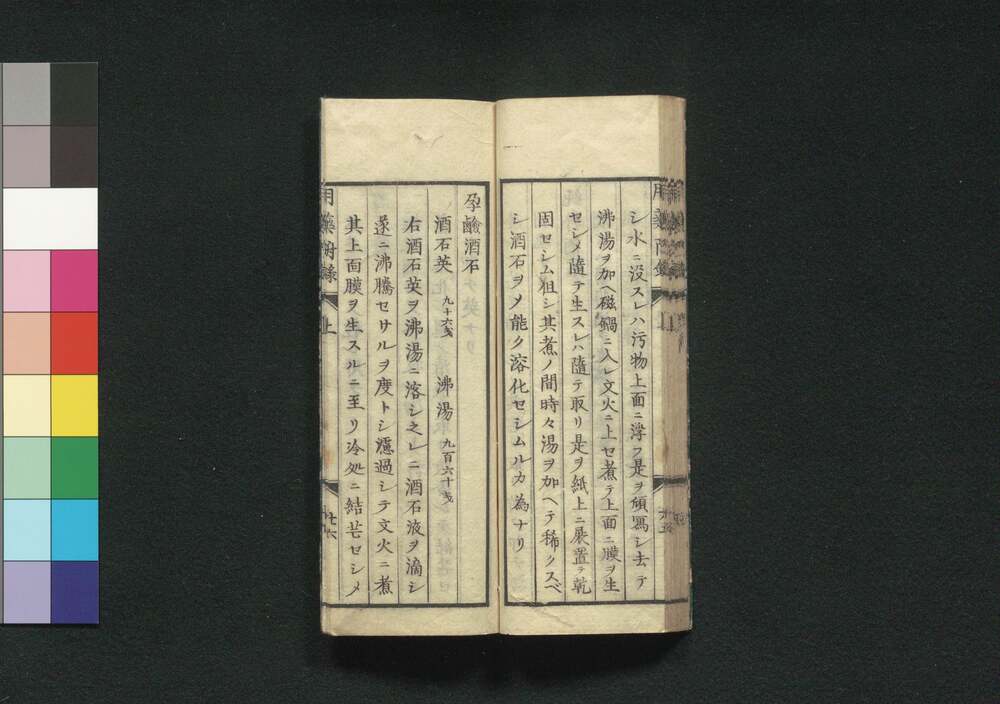 シ水ニ没スレハ汚物上面ニ浮フ是ヲ傾瀉シ去テ
沸湯ヲ加ヘ磁鍋ニ入レ文火ニ上セ煮テ上面ニ膜ヲ生
セシメ隨テ生スレハ隨テ取リ是ヲ紙上ニ展置テ乾
固セシム但シ其煮ノ間時々湯ヲ加ヘテ稀クスベ
シ酒石ヲメ能ク溶化セシムルカ為ナリ
孕鹼酒石
酒石英 九十六戔 沸湯 九百六十戔
右酒石英ヲ沸湯ニ溶シ之レニ酒石液ヲ滴シ
遂ニ沸騰セサルヲ度トシ濾過シテ文火ニ煮
其上面膜ヲ生スルニ至リ冷処ニ結芒セシメ
用藥附録 上 廿六